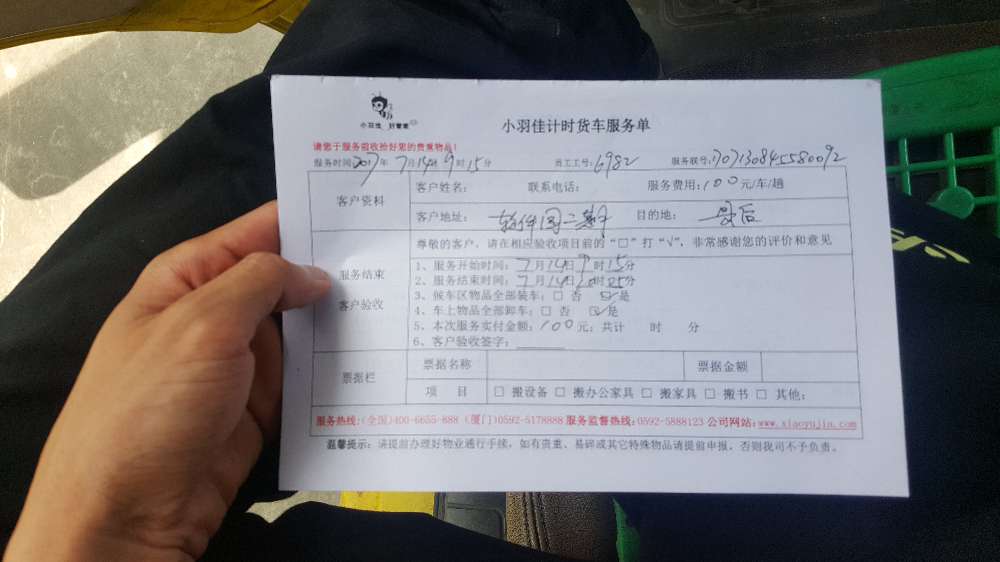 小羽佳 好管家
小羽佳计时货车服务单
请您于服务前收捡好您的贵重物品!
服务时间:2017年7月14日9时15分 员工工号:6982 服务联号:
客户资料
客户姓名: 联系电话: 服务费用:100元/车/趟
客户地址: 软件园二期 目的地:
服务结束
客户验收
尊敬的客户,请在相应验收项目前的“□”打“√”,非常感谢您的评价和意见
1、服务开始时间:7月14日9时15分
2、服务结束时间:7月14日时25分
3、候车区物品全部装车:□ 否 ☑是
4、车上物品全部卸车:□ 否 ☑是
5、本次服务实付金额:100元;共计 时 分
6、客户验收签字:
票据栏
票据名称 票据金额
项 目 □ 搬设备 □ 搬办公家具 □ 搬家具 □ 搬书 □ 其他:
服务热线:(全国)400-6655-888 (厦门)0592-5178888 服务监督热线:0592-5888123 公司网站:www.xiaoyujia.com
温馨提示:请提前办理好物业通行手续,如有贵重、易碎或其它特殊物品请提前申报,否则我司不予负责。